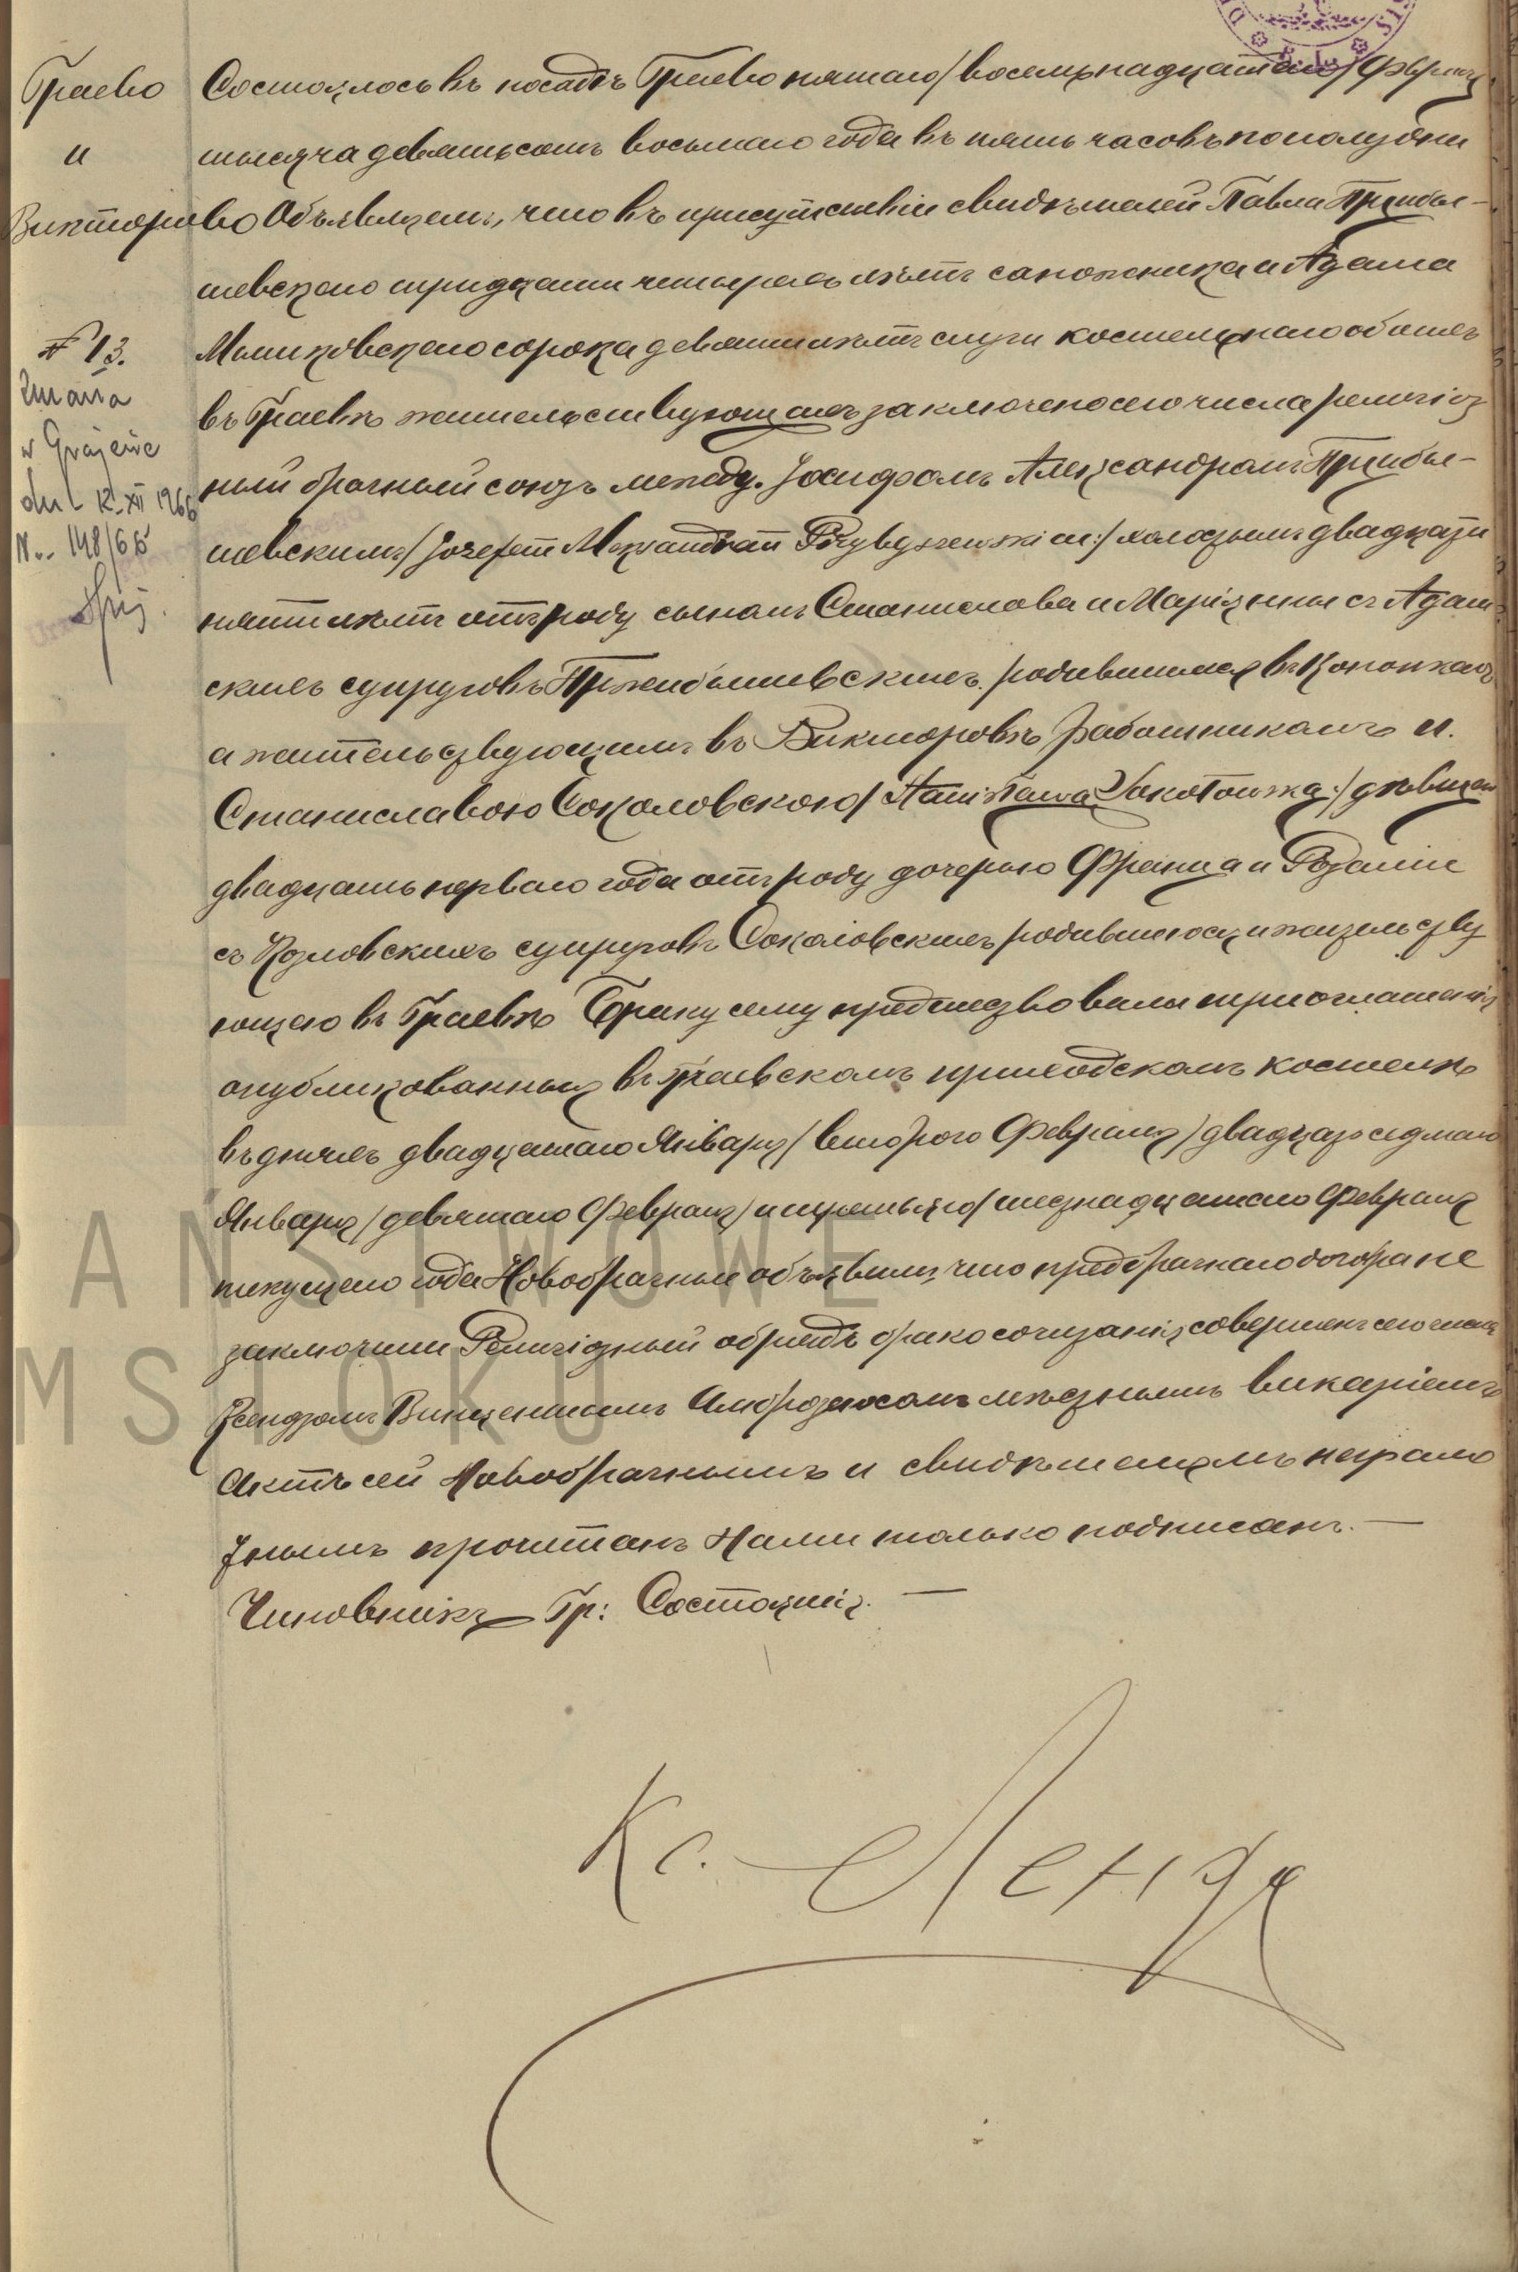 Граево
и
Викторово
№ 13.
Zmarła
w Grajewie
dn. 12.XII 1966
Nr. 148/66
Состоялось въ посадѣ Граево пятаго /восемьнадцатаго/ Февраля
тысяча девятьсотъ восьмаго года въ пять часовъ пополудни
Объявляемъ, что въ присутствіи свидѣтелей Павла Пршибы-
шевскаго тридцати четырехъ лѣтъ сапожника и Адама
сорока девяти лѣтъ слуги костельнаго обоихъ
въ Граевѣ жительствующихъ заключенъ сего числа религіоз
ный брачный союзъ между Іосифомъ Александромъ Пршибы-
шевскимъ /Józefem Alexandrem Przybyszewskim:/ холостымъ двадцати
пяти лѣтъ отъ роду сыномъ Станислава и Маріянны съ Адам
скихъ супруговъ Пржибышевскихъ родившимся въ Конопкахъ
а жительствующимъ въ Викторовѣ работникомъ и
Станиславою Соколовскою /Stanisława Sokołowska:/ дѣвицею
двадцать перваго года отъ роду дочерью Франца и Розаліи
съ Козловскихъ супруговъ Соколовскихъ родившеюся и жительству
ющею въ Граевѣ Браку сему предшествовали три оглашенія
опубликованныя въ Граевскомъ приходскомъ костелѣ
въ дняхъ двадцатаго Января /второго Февраля/ двадцать седмаго
Января /девятаго Февраля/ и третьяго /шестнадцатаго Февраля
текущаго года Новобрачные объявили, что предбрачнаго договора не
заключили Религіозный обрядъ бракосочетанія совершенъ сего числа
Ксендзомъ Винцентымъ Амброзюсомъ мѣстнымъ викаріемъ
Актъ сей Новобрачнымъ и свидѣтелямъ неграмо
тнымъ прочитанъ Нами только подписанъ. —
Чиновникъ Гр: Состоянія. —
Кс. Ленда
PAŃSTWOWE
MSTOKU